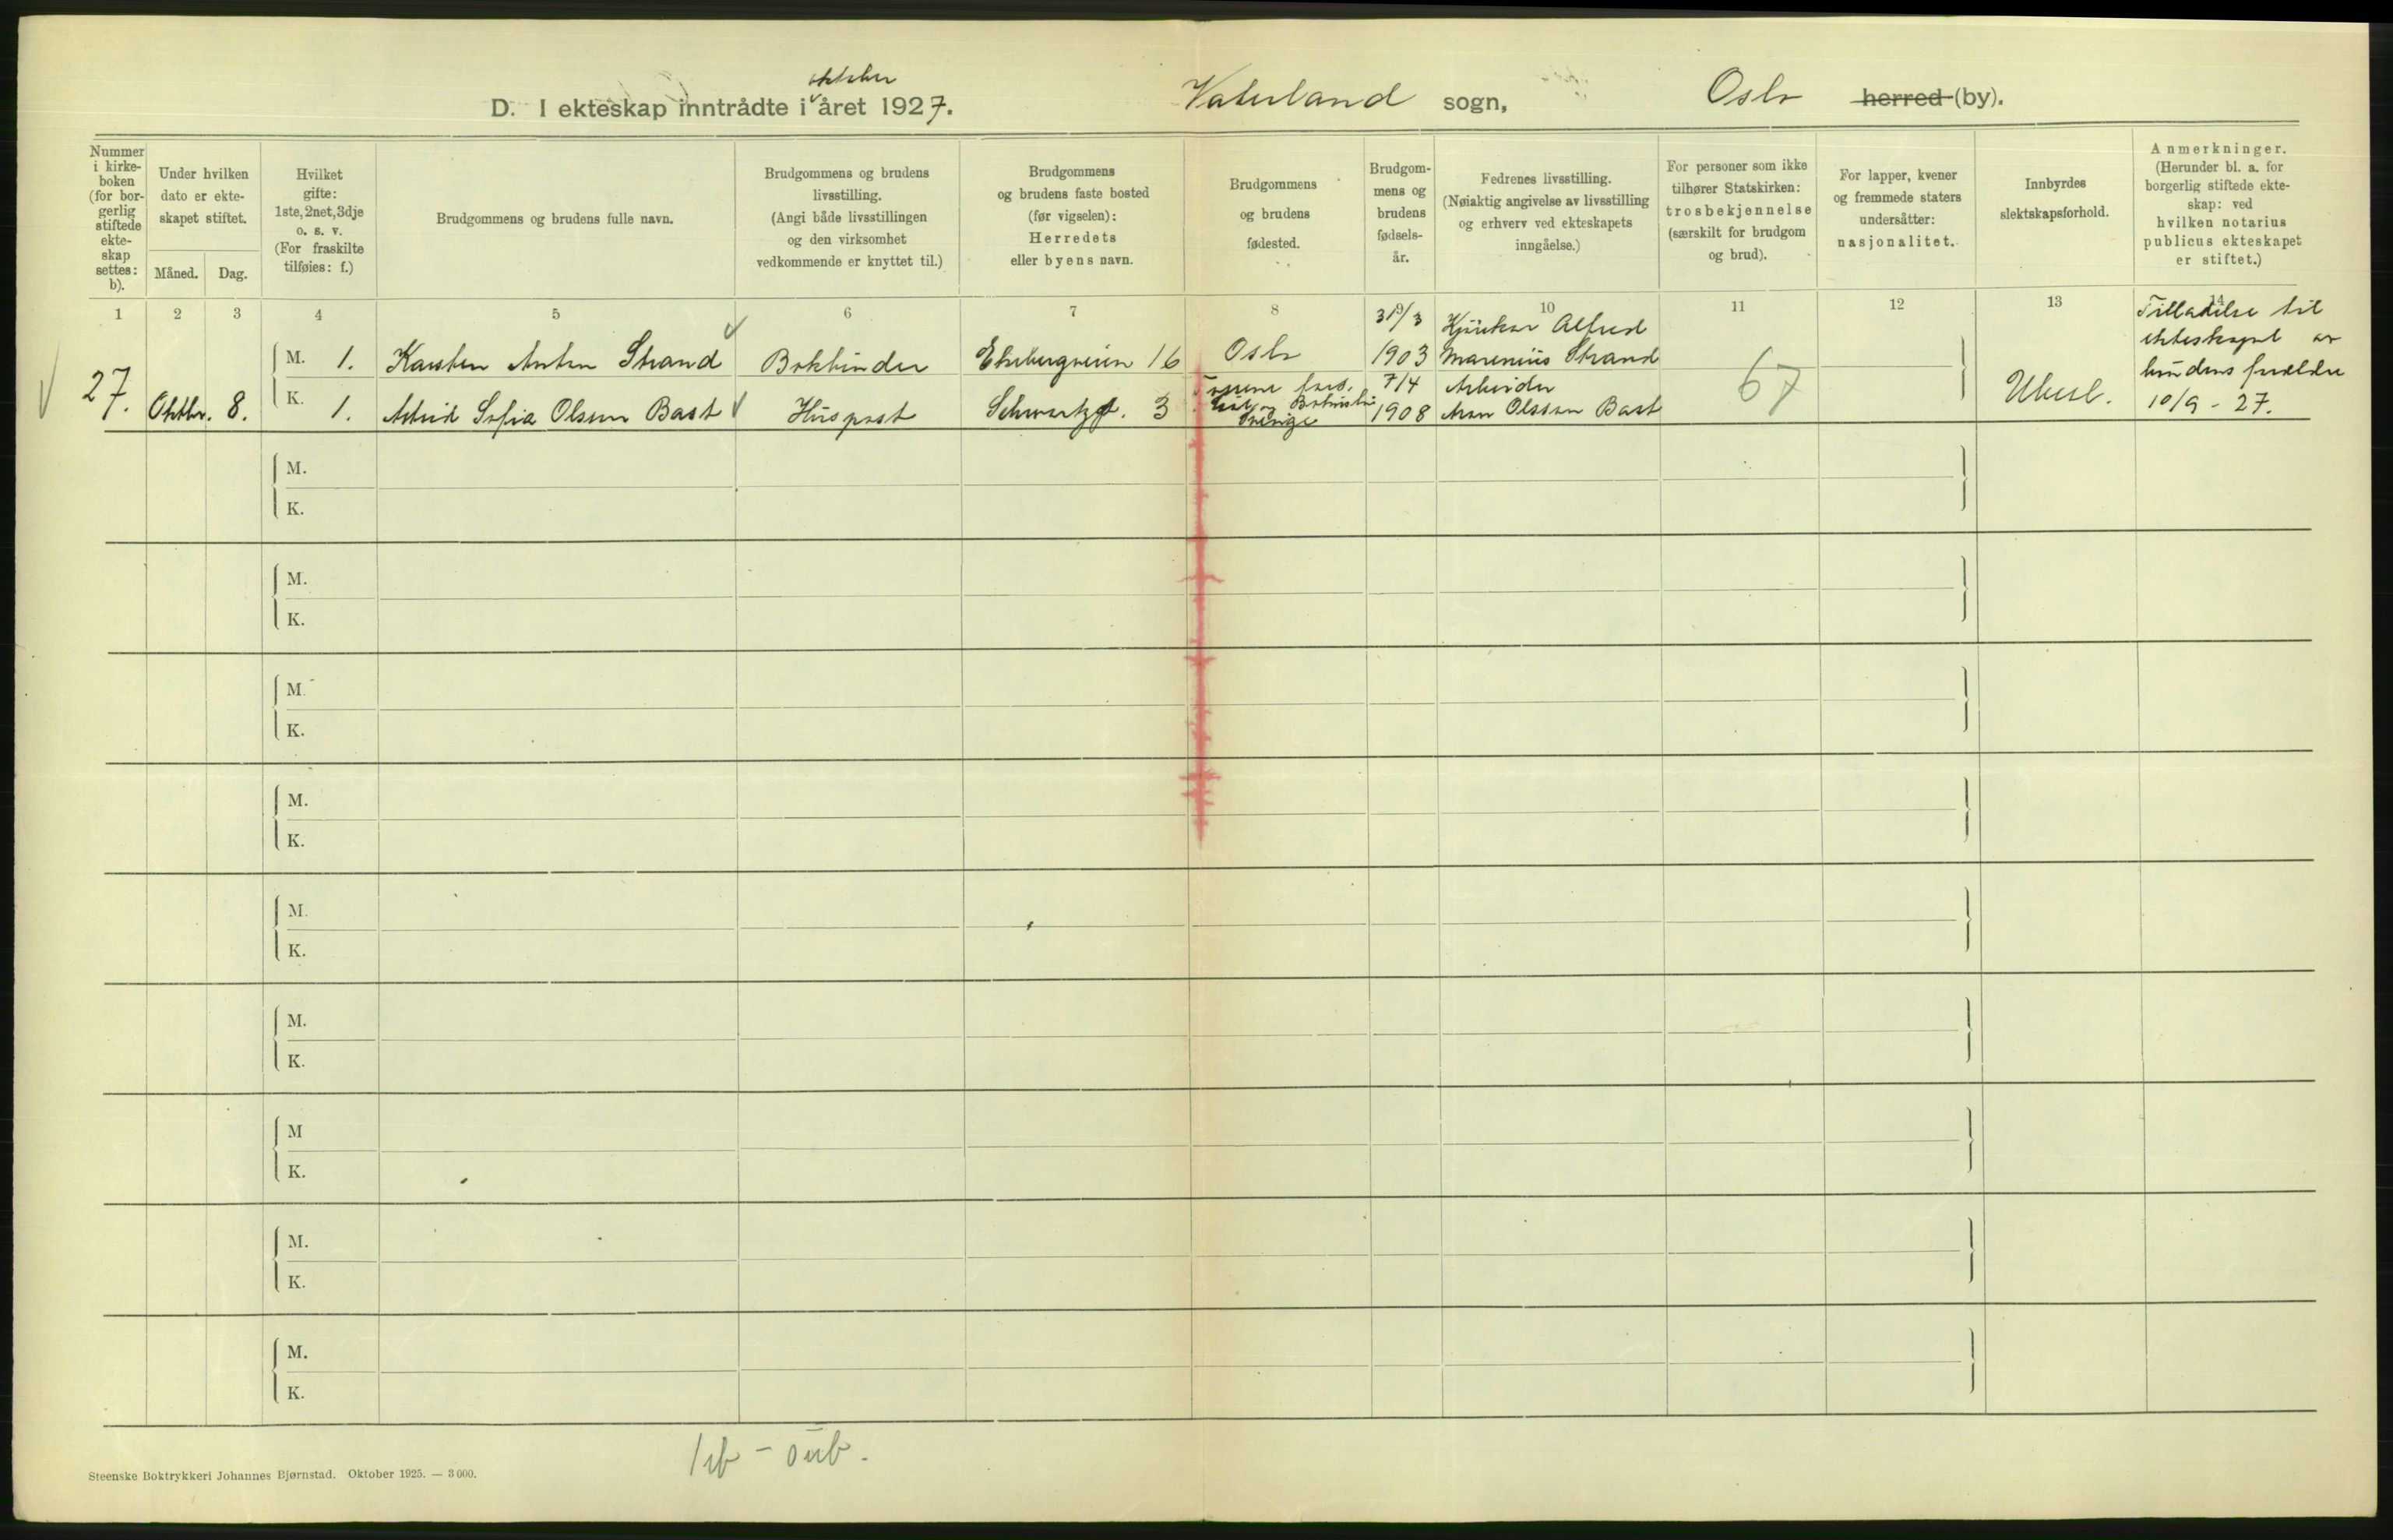 oktober
D. I ekteskap inntrådte i året 1927. Vaterland sogn, Oslo herred (by).
Nummer i kirke-boken (for bor-gerlig stiftede ekte-skap settes: b).
Under hvilken dato er ekte-skapet stiftet.
Måned. Dag.
Hvilket gifte: 1ste, 2net, 3dje o. s. v. (For fraskilte tilføies: f.)
Brudgommens og brudens fulle navn.
Brudgommens og brudens livsstilling. (Angi både livsstillingen og den virksomhet vedkommende er knyttet til.)
Brudgommens og brudens faste bosted (før vigselen): Herredets eller byens navn.
Brudgommens og brudens fødested.
Brudgom-mens og brudens fødsels-år.
Fedrenes livsstilling. (Nøiaktig angivelse av livsstilling og erhverv ved ekteskapets inngåelse.)
For personer som ikke tilhører Statskirken: trosbekjennelse (særskilt for brudgom og brud).
For lapper, kvener og fremmede staters undersåtter: nasjonalitet.
Innbyrdes slektskapsforhold.
Anmerkninger. (Herunder bl. a. for borgerlig stiftede ekte-skap: ved hvilken notarius publicus ekteskapet er stiftet.)
1 2 3 4 5 6 7 8 9 10 11 12 13 14
27. Oktbr. 8.
M. 1. Karsten Anton Strand Bokbinder Ekebergveien 16 Oslo 31/3 1903 Alfred Marenius Strand
K. 1. Astrid Sofia Olsson Bast Huspost Schwartzg. 3 Sverige 7/4 1908 Arbeider Aron Olsson Bast
67
Ubesl.
Tilladelse til
ekteskapet av
brudens forældre
10/9 - 27.
M.
K.
M.
K.
M.
K.
M.
K.
M.
K.
M.
K.
M
K.
M.
K.
M.
K.
Steenske Boktrykkeri Johannes Bjørnstad. Oktober 1925. — 3 000.